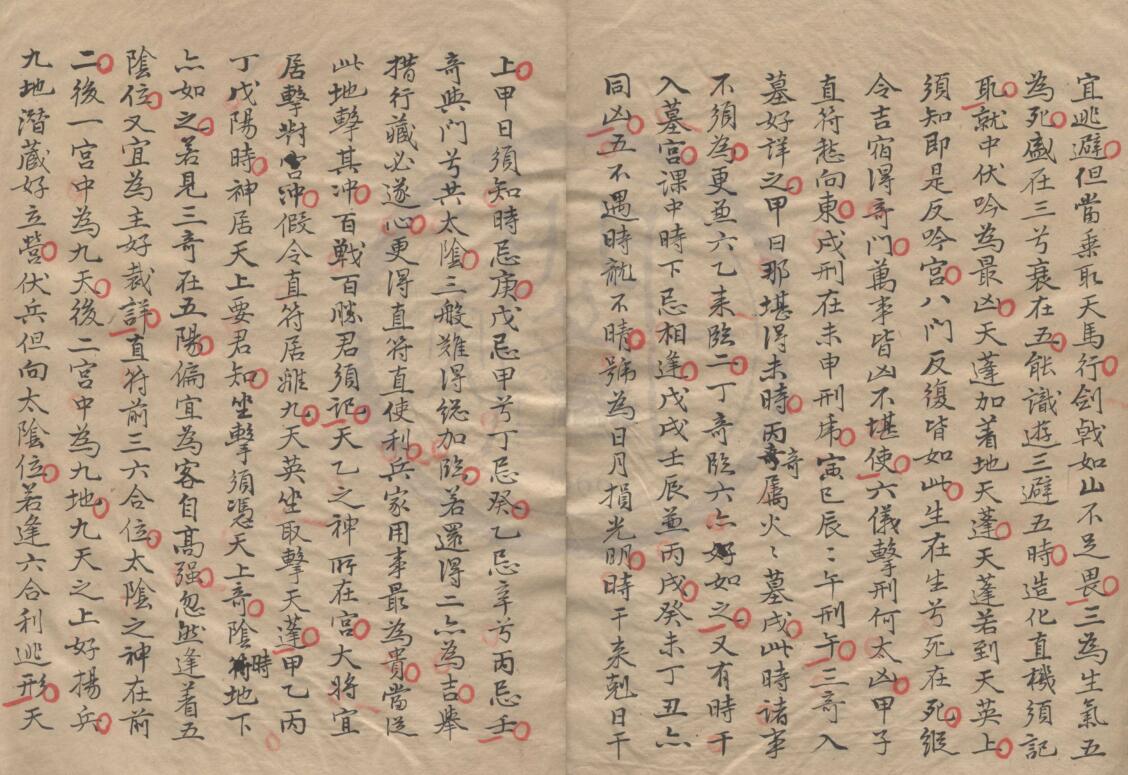 宜逃避但當乗取天馬行劍戟如山不足畏三為生氣五
為死盛在三兮衰在五能識遊三避五時造化直機須記
取就中伏吟為最凶天蓬加着地天蓬天蓬若到天英上
須知即是反吟宮八門反復皆如此生在生兮死在死縦
令吉宿得竒門萬事皆凶不堪使六儀擊刑何太凶甲子
直符愁向東戌刑在未申刑乕寅巳辰〻午刑午三竒入
墓好詳之甲日那堪得未時丙竒属火〻墓戌此時诸事
不須為更兼六乙来臨二丁竒臨六亦如之又有時干
入墓宮課中時下忌相逢戊戌壬辰兼丙戌癸未丁丑亦
同凶五不遇時龍不晴號為日月損光明時干来剋日干
上甲日須知時忌庚戊忌甲兮丁忌癸乙忌辛兮丙忌壬
竒與門兮共太陰三般難得総加臨若還得二亦為吉舉
措行藏必遂心更得直符直使利兵家用事最為貴當從
此地擊其冲百戰百勝君須記天乙之神所在宮大將宜
居擊對宮冲假令直符居離九天英坐取擊天蓬甲乙丙
丁戊陽時神居天上要君知坐擊須憑天上竒陰時地下
亦如之若見三竒在五陽偏宜為客自高强忽然逢着五
陰位又宜為主好裁詳直符前三六合位太陰之神在前
二後一宮中為九天後二宮中為九地九天之上好揚兵
九地潜藏好立營伏兵但向太陰位若逢六合利逃形天